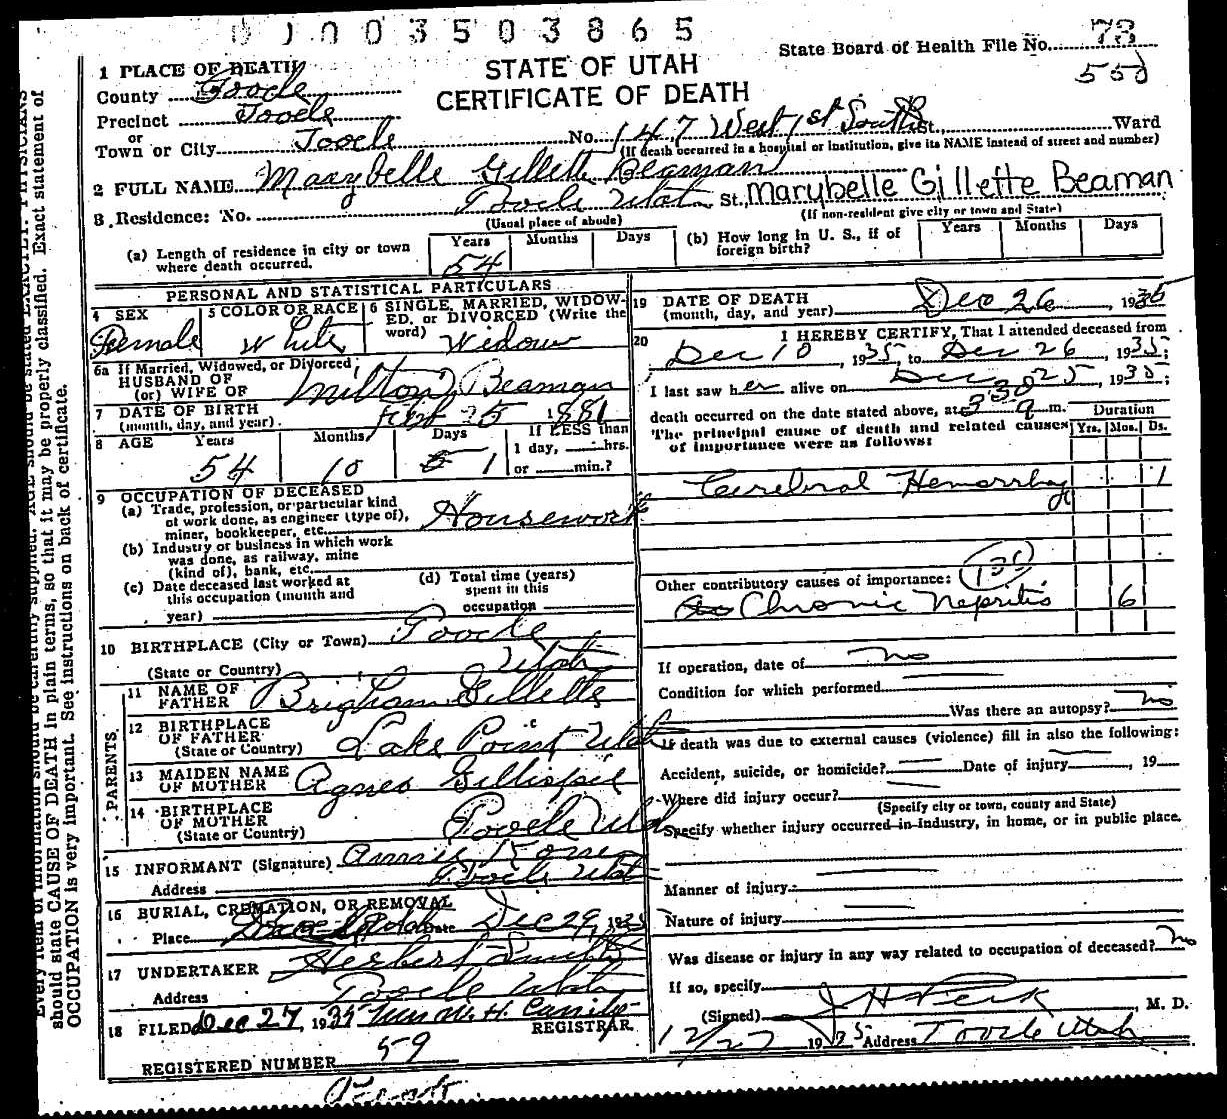 0003503865
State Board of Health File No. 73
550
STATE OF UTAH
CERTIFICATE OF DEATH
1 PLACE OF DEATH
County Tooele
Precinct Tooele
or
Town or City Tooele No. 147 West 1st South St., Ward
(If death occurred in a hospital or institution, give its NAME instead of street and number)
2 FULL NAME Marybelle Gillette Beaman
3 Residence: No. Tooele Utah St. Marybelle Gillette Beaman
(Usual place of abode) (If non-resident give city or town and State)
(a) Length of residence in city or town where death occurred. Years 54 Months Days
(b) How long in U. S., if of foreign birth? Years Months Days
PERSONAL AND STATISTICAL PARTICULARS
4 SEX Female
5 COLOR OR RACE White
6 SINGLE, MARRIED, WIDOWED, or DIVORCED (Write the word) Widow
6a If Married, Widowed, or Divorced
HUSBAND OF
(or) WIFE OF Milton Beaman
7 DATE OF BIRTH
(month, day, and year) 25 1881
8 AGE Years 54 Months 10 Days 1
If LESS than
1 day, hrs.
or min.?
9 OCCUPATION OF DECEASED
(a) Trade, profession, or particular kind
of work done, as engineer (type of),
miner, bookkeeper, etc. Housework
(b) Industry or business in which work
was done, as railway, mine
(kind of), bank, etc.
(c) Date deceased last worked at
this occupation (month and
year)
(d) Total time (years)
spent in this
occupation
10 BIRTHPLACE (City or Town) Tooele
(State or Country) Utah
PARENTS
11 NAME OF FATHER Brigham Gillette
12 BIRTHPLACE OF FATHER
(State or Country) Lake Point Utah
13 MAIDEN NAME OF MOTHER Agnes Gillispie
14 BIRTHPLACE OF MOTHER
(State or Country) Tooele Utah
15 INFORMANT (Signature) Annie
Address Tooele Utah
16 BURIAL, CREMATION, OR REMOVAL
Place Date Dec 29, 1935
17 UNDERTAKER Herbert Smith
Address Tooele Utah
18 FILED Dec 27, 1935 Mrs M. H. REGISTRAR.
REGISTERED NUMBER 59
19 DATE OF DEATH
(month, day, and year) Dec 26, 1935
20 I HEREBY CERTIFY, That I attended deceased from
Dec 10, 1935, to Dec 26, 1935;
I last saw her alive on Dec 25, 1935;
death occurred on the date stated above, at 3 30 a m.
The principal cause of death and related causes
of importance were as follows:
Duration
Yrs. Mos. Ds.
Cerebral Hemorrhag 1
Other contributory causes of importance:
Chronic Nepritis 6
If operation, date of no
Condition for which performed
Was there an autopsy? no
If death was due to external causes (violence) fill in also the following:
Accident, suicide, or homicide? Date of injury , 19
Where did injury occur?
(Specify city or town, county and State)
Specify whether injury occurred in industry, in home, or in public place.
Manner of injury
Nature of injury
Was disease or injury in any way related to occupation of deceased? no
If so, specify
(Signed) J H Peck, M. D.
12/27 1935 Address Tooele Utah
should state CAUSE OF DEATH in plain terms, so that it may be properly classified. Exact statement of
OCCUPATION is very important. See instructions on back of certificate.